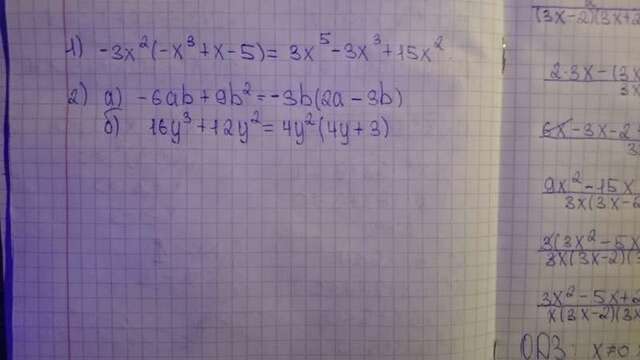 1) -3x²(-x³+x-5)=3x⁵-3x³+15x²
2) а) -6ab+9b²=-3b(2a-3b)
б) 16y³+12y²=4y²(4y+3)
(3x-2)(3x+2
2·3x-(3x
3x
6x-3x-2
3
9x²-15x
3x(3x-2
3(3x²-5x
3x(3x-2)(3
3x²-5x+2
x(3x-2)(3x
ОДЗ: x≠0